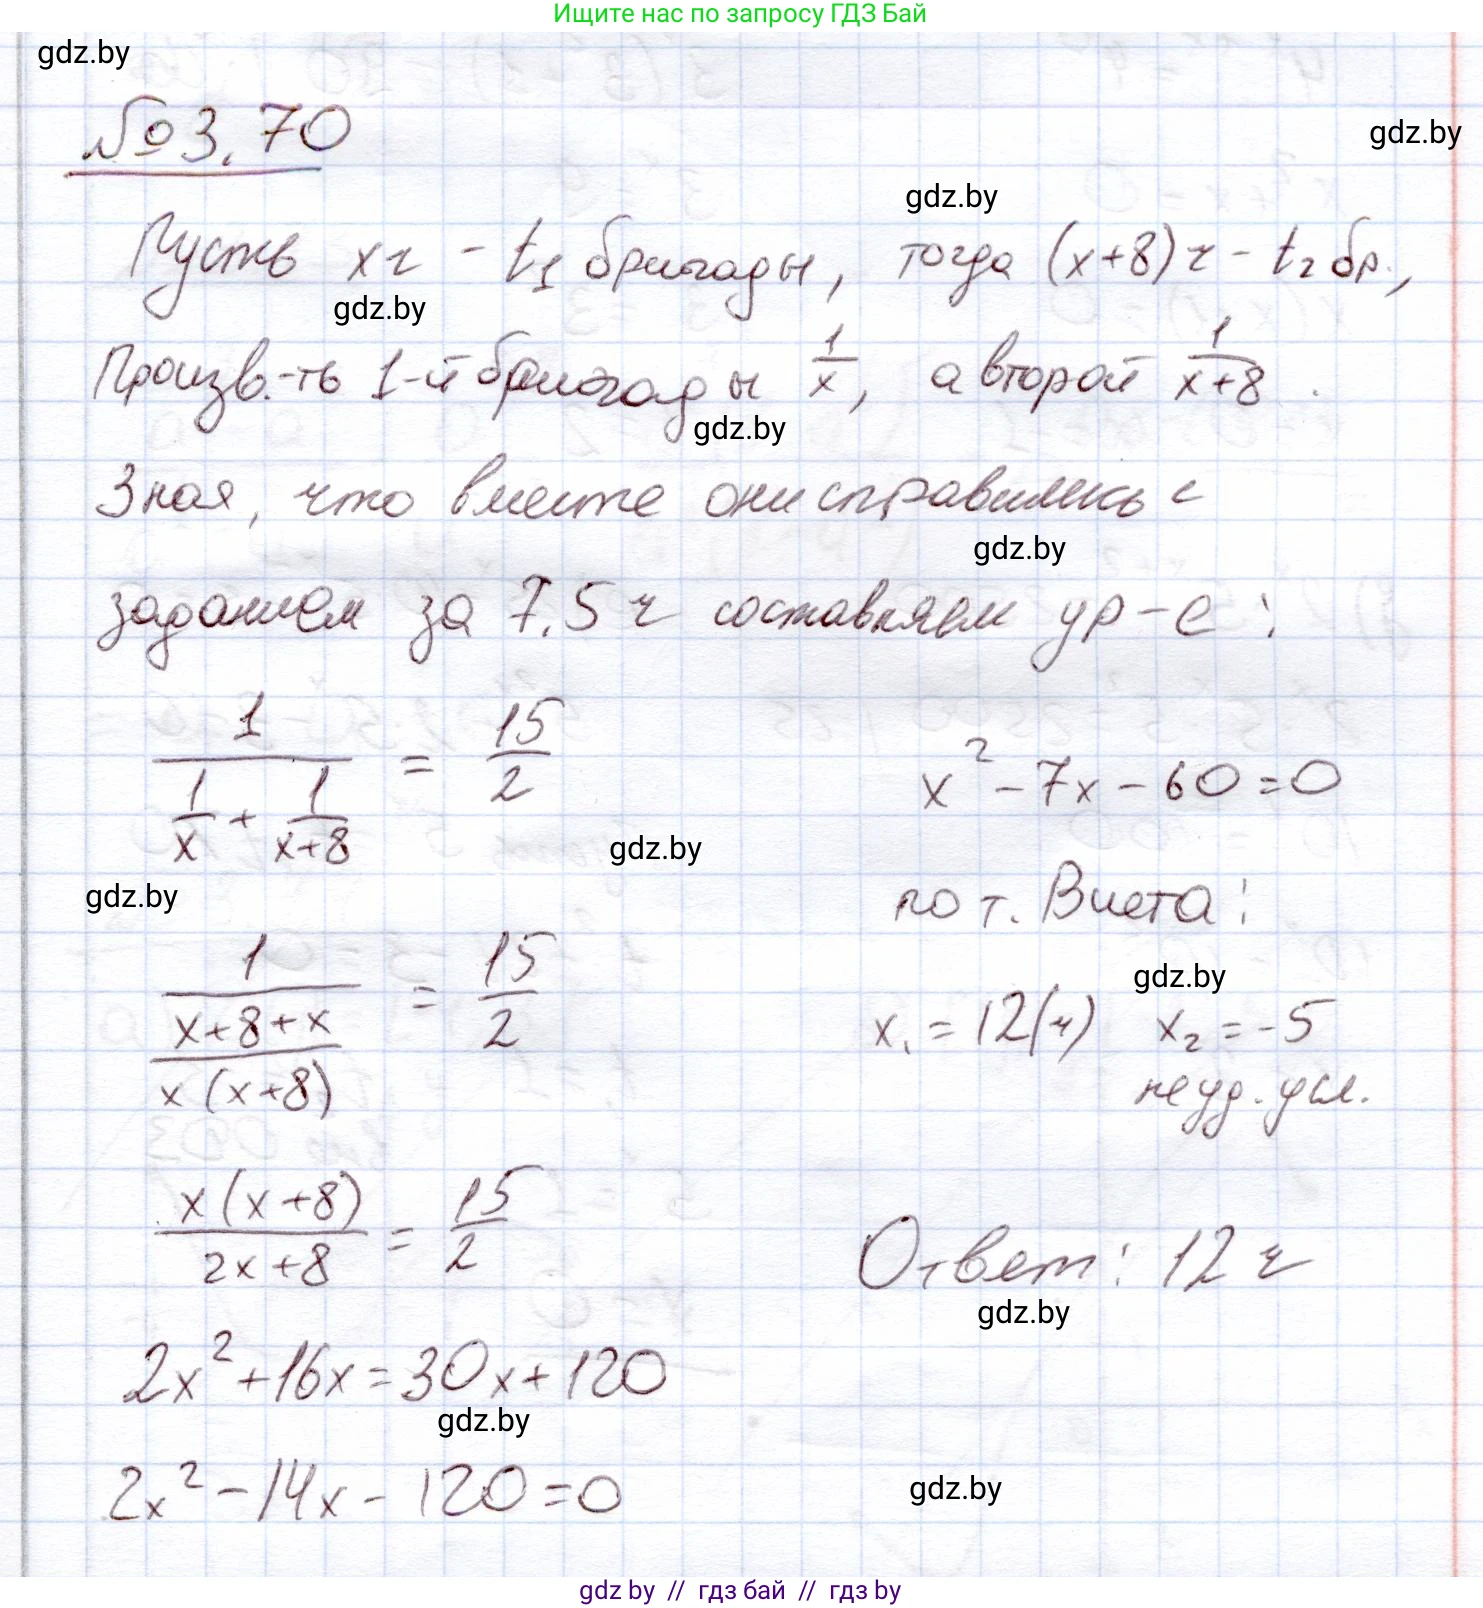 Ищите нас по запросу ГДЗ Бай
gdz.by
№3.70
gdz.by
gdz.by
Пусть x ч - t₁ бригады, тогда (x+8) ч - t₂ бр.,
gdz.by
Произв.-ть 1-й бригады 1/x, а второй 1/(x+8).
gdz.by
Зная, что вместе они справились с
gdz.by
заданием за 7,5 ч составляем ур-е:
1/(1/x + 1/(x+8)) = 15/2
gdz.by
gdz.by
1/((x+8+x)/(x(x+8))) = 15/2
x(x+8)/(2x+8) = 15/2
2x² + 16x = 30x + 120
gdz.by
2x² - 14x - 120 = 0
x² - 7x - 60 = 0
по т. Виета:
gdz.by
x₁ = 12(ч) x₂ = -5
не уд. усл.
Ответ: 12 ч
gdz.by
gdz.by
gdz by // гдз бай // гдз by